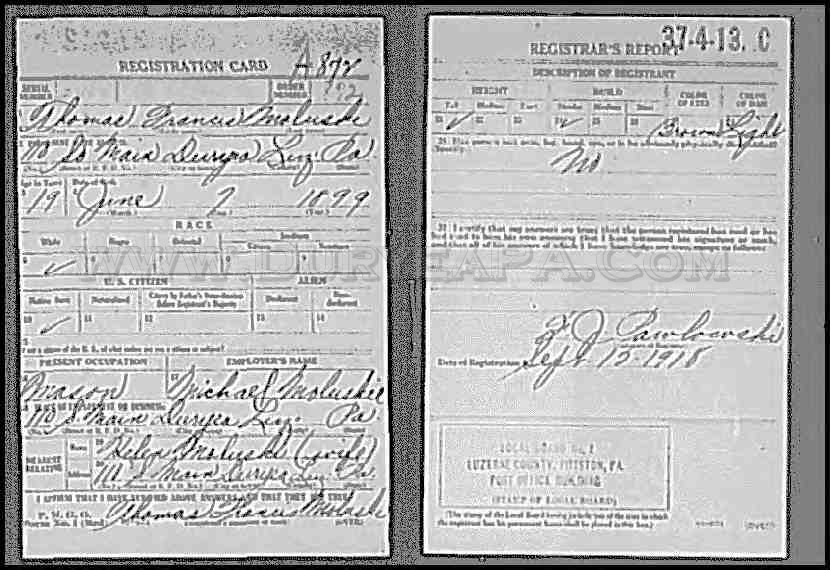 REGISTRATION CARD A892
SERIAL NUMBER ORDER NUMBER
Thomas Francis Moluski
110 So Main Duryea Luz. Pa
Age in Years Date of Birth
19 June 7 1899
(Month.) (Day.) (Year.)
RACE
White Negro Oriental Indian
Citizen Noncitizen
5 ✓ 6 7 8 9
U. S. CITIZEN ALIEN
Native Born Naturalized Citizen by Father's Naturalization Before Registrant's Majority Declarant Non-declarant
10 ✓ 11 12 13 14
15
PRESENT OCCUPATION EMPLOYER'S NAME
Mason Michael Moluskie
PLACE OF EMPLOYMENT OR BUSINESS
110 S Main Duryea Luz. Pa
NEAREST RELATIVE
Name Helen Moluski (wife)
Address 110 S Main Duryea Luz. Pa
I AFFIRM THAT I HAVE VERIFIED ABOVE ANSWERS AND THAT THEY ARE TRUE
P. M. G. O.
Form No. 1 (Red) Thomas Francis Moluski
37-4-13. C
REGISTRAR'S REPORT
DESCRIPTION OF REGISTRANT
HEIGHT BUILD COLOR OF EYES COLOR OF HAIR
Tall Medium Short Slender Medium Stout
21 ✓ 22 23 24 ✓ 25 26 Brown Light
No
30 I certify that my answers are true; that the person registered has read or has had read to him his own answers; that I have witnessed his signature or mark, and that all of his answers of which I have knowledge are true, except as follows:
WWW.DURYEAPA.COM
F. J. Pawlowski
Date of Registration Sept 12-1918
LOCAL BOARD No. 2
LUZERNE COUNTY, PITTSTON, PA.
POST OFFICE BUILDING
(STAMP OF LOCAL BOARD)
(The stamp of the Local Board having jurisdiction of the area in which
the registrant has his permanent home shall be placed in this box.)